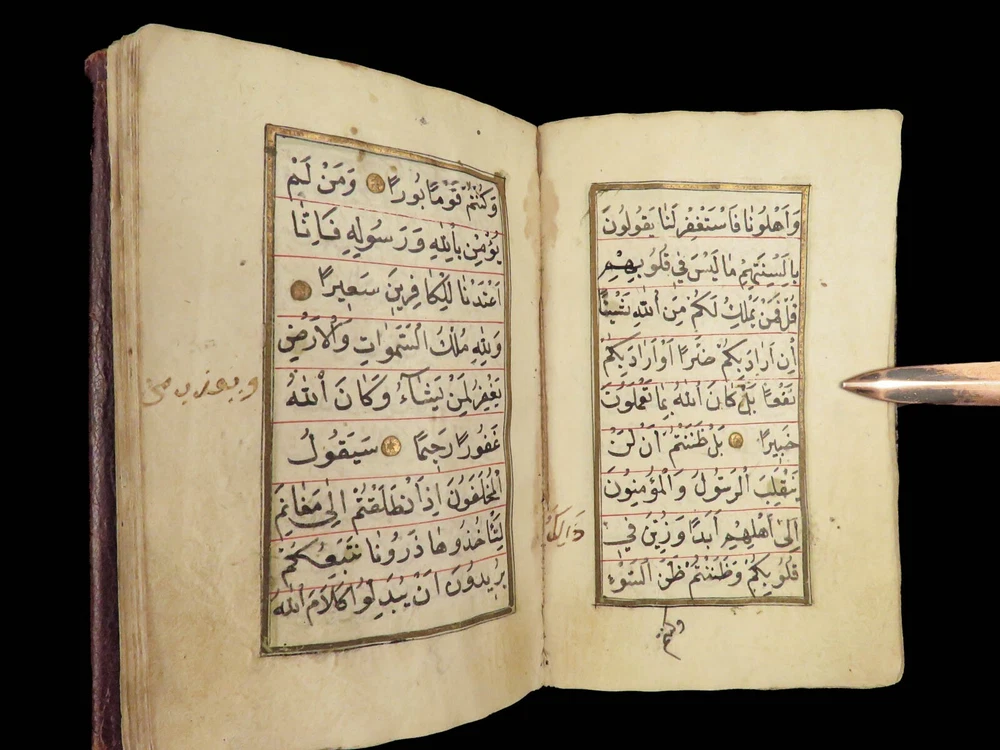 وَاَهْلُونَا فَاسْتَغْفِرْ لَنَا يَقُولُونَ
بِاَلْسِنَتِهِمْ مَا لَيْسَ فِي قُلُوبِهِمْ
قُلْ فَمَنْ يَمْلِكُ لَكُمْ مِنَ اللّٰهِ شَيْئًا
اِنْ اَرَادَ بِكُمْ ضَرًّا اَوْ اَرَادَ بِكُمْ
نَفْعًا بَلْ كَانَ اللّٰهُ بِمَا تَعْمَلُونَ
خَبِيرًا بَلْ ظَنَنْتُمْ اَنْ لَنْ
يَنْقَلِبَ الرَّسُولُ وَالْمُؤْمِنُونَ
اِلٰى اَهْلِيهِمْ اَبَدًا وَزُيِّنَ فِي
ذَالِكَ
قُلُوبِكُمْ وَظَنَنْتُمْ ظَنَّ السَّوْءِ
وكنتم
وَكُنْتُمْ قَوْمًا بُورًا وَمَنْ لَمْ
يُؤْمِنْ بِاللّٰهِ وَرَسُولِهِ فَاِنَّا
اَعْتَدْنَا لِلْكَافِرِينَ سَعِيرًا
وَلِلّٰهِ مُلْكُ السَّمٰوَاتِ وَالْاَرْضِ
يَغْفِرُ لِمَنْ يَشَاءُ وَكَانَ اللّٰهُ
ويعذب من
غَفُورًا رَحِيمًا سَيَقُولُ
الْمُخَلَّفُونَ اِذَا انْطَلَقْتُمْ اِلٰى مَغَانِمَ
لِتَأْخُذُوهَا ذَرُونَا نَتَّبِعْكُمْ
يُرِيدُونَ اَنْ يُبَدِّلُوا كَلَامَ اللّٰهِ